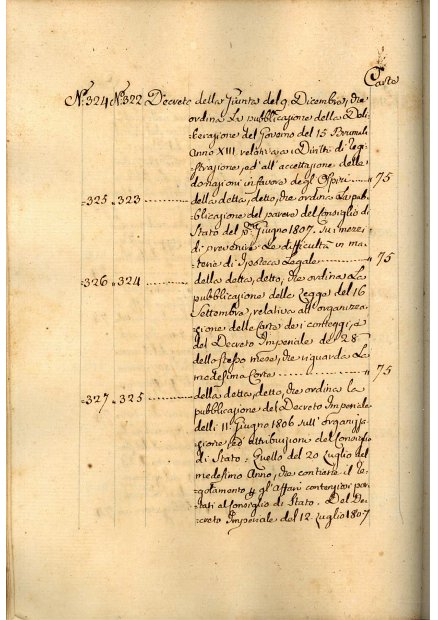 Carte
N.º 324 N.º 322 Decreto della Giunta del 9. Dicembre, che
ordina La pubblicazione della Deli-
berazione del Governo del 15 Brumale
Anno XIII relativa a i Diritti di regi-
strazione, ed all' accettazione delle
donazioni in favore degl' Ospizi 75
=325 „ 323 della detta, detto, che ordina La pub-
blicazione del parere del Consiglio di
Stato del p.º Giugno 1807. Su i mezzi
di prevenire Le difficultà in ma-
teria di Ipoteca Legale 75
=326 „ 324 della detta, detto, che ordina La
pubblicazione della Legge del 16
Settembre, relativa all' organizza-
zione della Corte dei conteggi, e
del Decreto Imperiale de' 28
dello stesso mese, che riguarda La
medesima Corte 75
=327 „ 325 della detta, detto, che ordina la
pubblicazione del Decreto Imperiale
delli 11 Giugno 1806 sull' organiz-
zazione ed attribuzioni del Consiglio
di Stato: Quello del 20 Luglio del
medesimo Anno, che contiene il re-
golamento p. gl' Affari contenziosi por-
tati al Consiglio di Stato. Del De-
creto Imperiale del 12. Luglio 1807